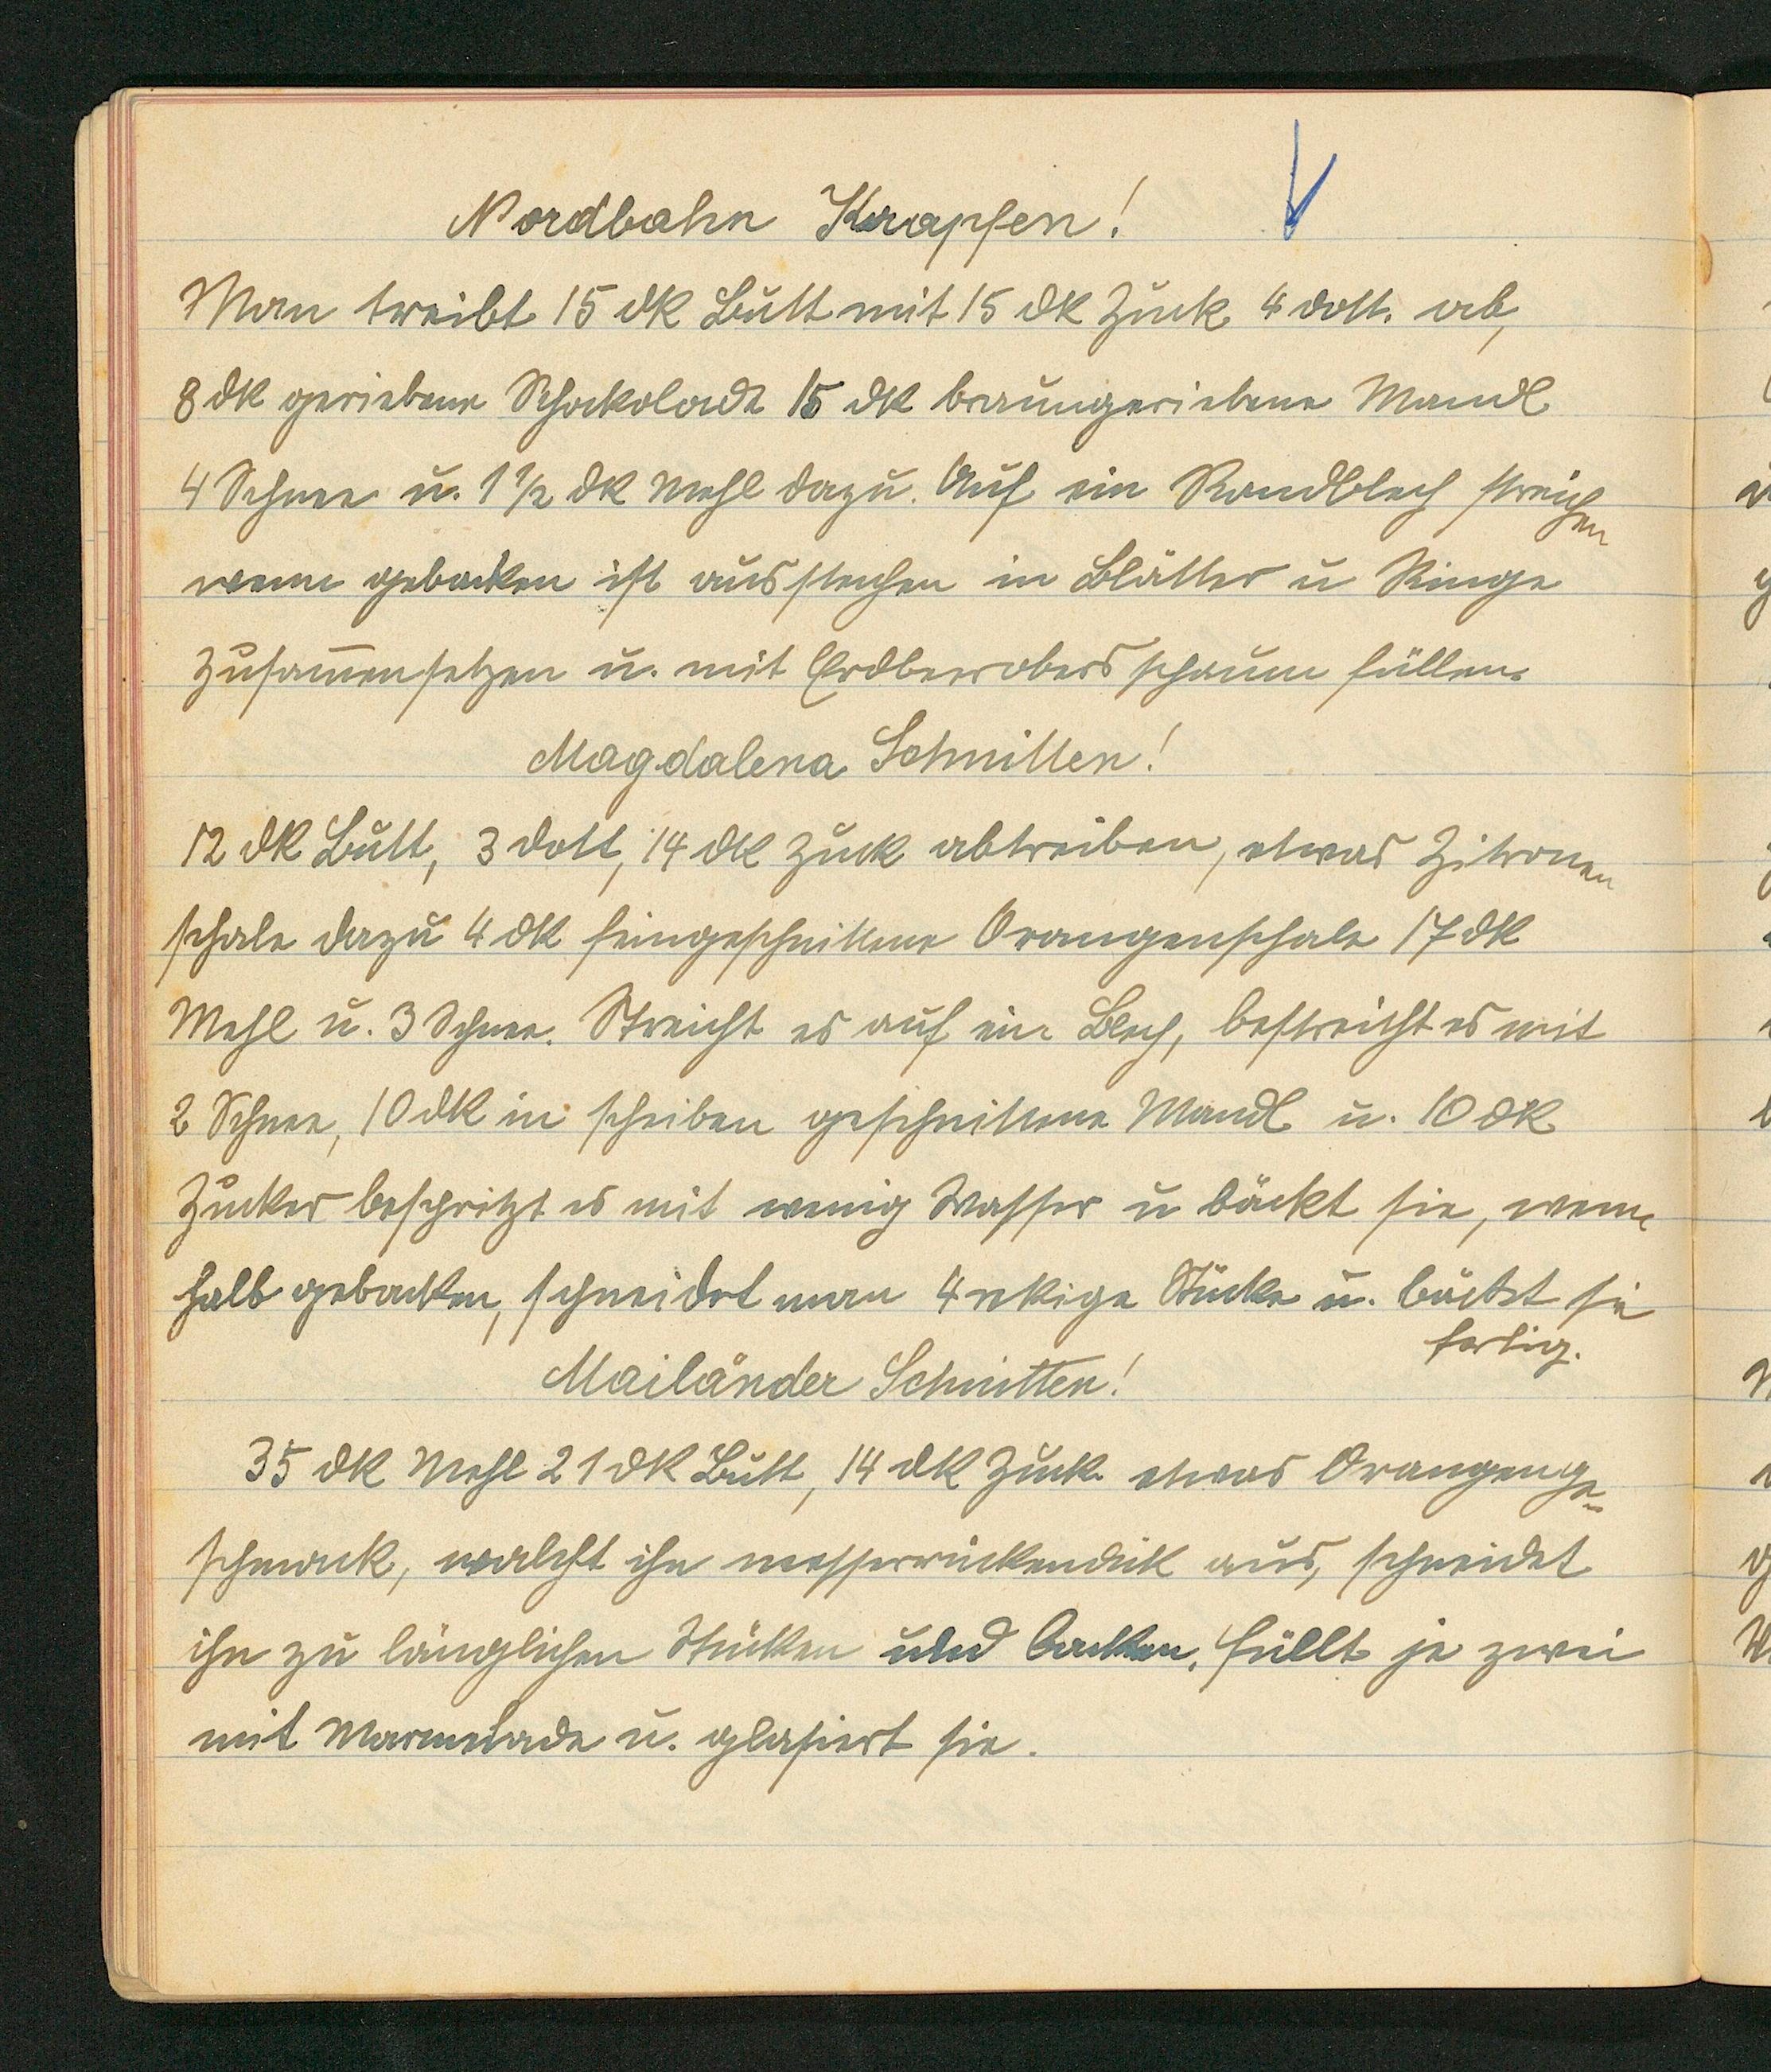 Nordbahn Krapfen!
Man treibt 15 dk Butt mit 15 dk Zuck 4 dott. ab,
8 dk geriebene Schokolade 15 dk braungeriebene Mandl
4 Schnee u. 1 1/2 dk Mehl dazu. Auf ein Randblech streichen
wenn gebacken ist ausstechen in Blätter u Ringe
zusammensetzen u. mit Erdbeerobersschaum füllen.
Magdalena Schnitten!
12 dk Butt, 3 dott, 14 dk Zuck abtreiben, etwas Zitronen
schale dazu 4 dk feingeschnittene Orangenschale 17 dk
Mehl u. 3 Schnee. Streicht es auf ein Blech, bestreicht es mit
2 Schnee, 10 dk in scheiben geschnittene Mandl u. 10 dk
Zucker bespritzt es mit wenig Wasser u bäckt sie, wenn
halb gebacken, schneidet man 4 ekige Stücke u. bäckt sie
fertig.
Mailänder Schnitten!
35 dk Mehl 21 dk Butt, 14 dk Zuck etwas Orangenge-
schmack, walcht ihn messerrückendick aus, schneidet
ihn zu länglichen Stücken und backen, füllt je zwei
mit Marmelade u. glasiert sie.